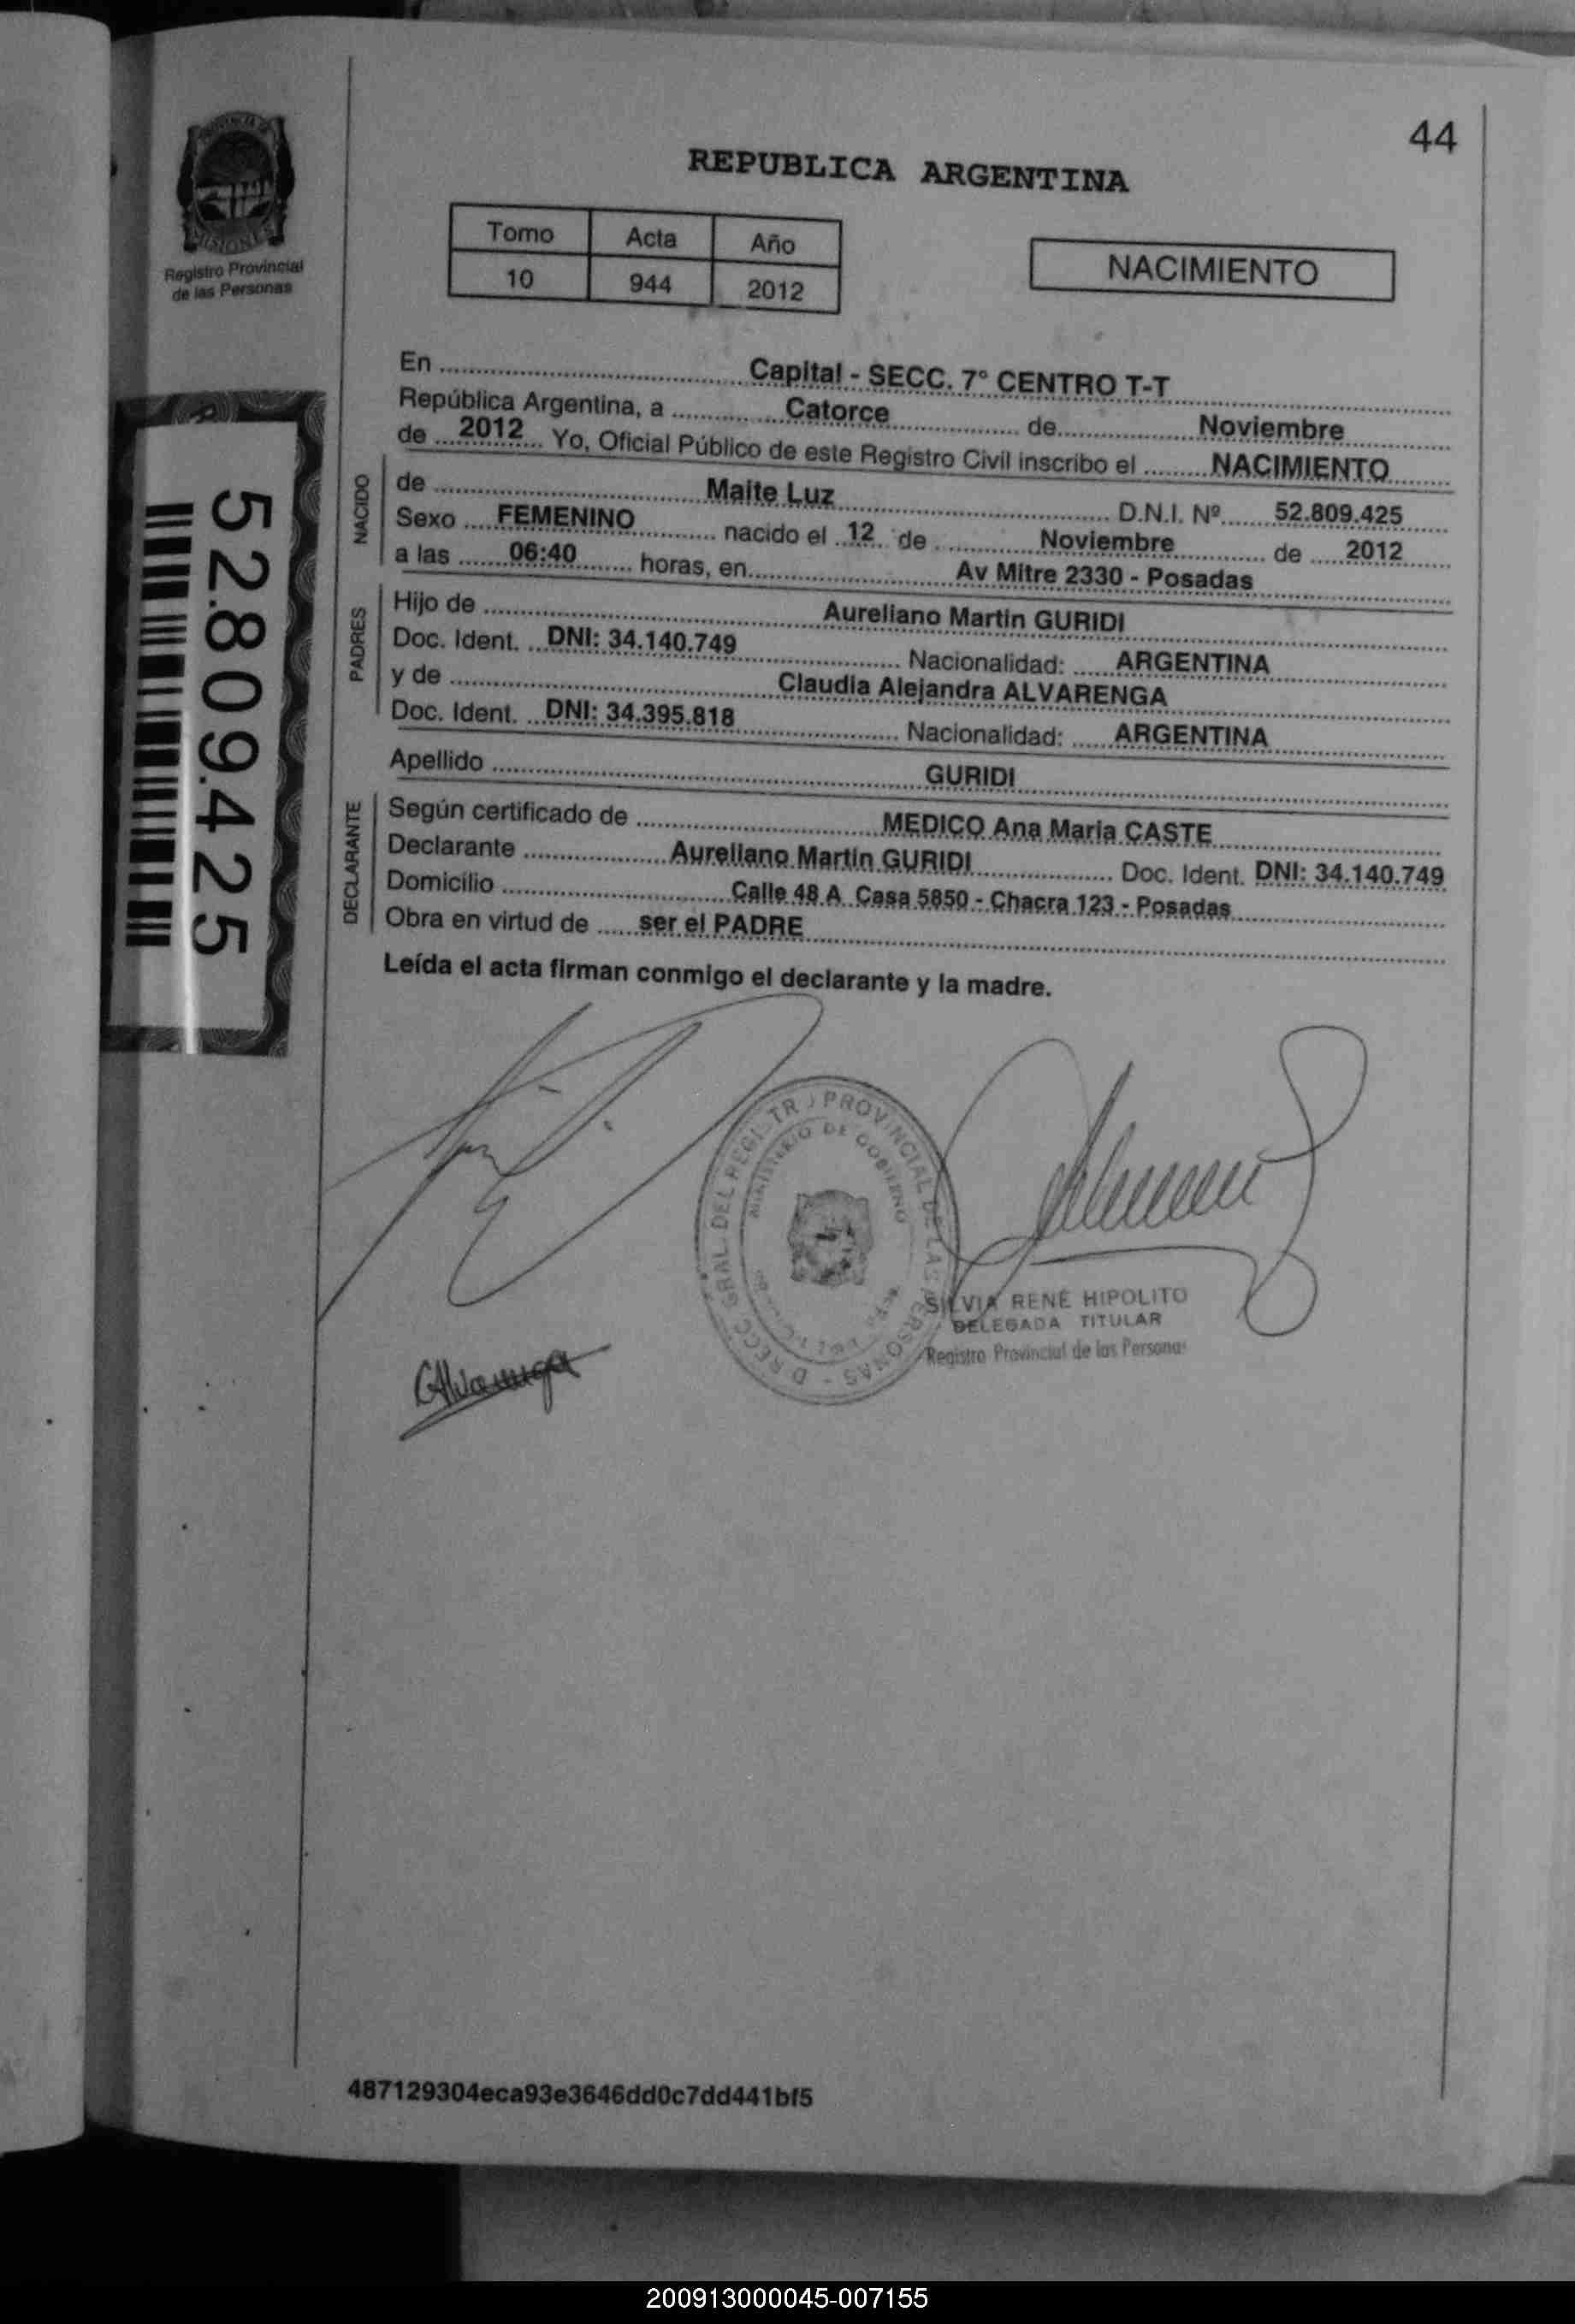 44
REPUBLICA ARGENTINA
PROVINCIA DE
MISIONES
Registro Provincial
de las Personas
Tomo Acta Año
10 944 2012
NACIMIENTO
En Capital - SECC. 7° CENTRO T-T
República Argentina, a Catorce de Noviembre
de 2012 Yo, Oficial Público de este Registro Civil inscribo el NACIMIENTO
NACIDO
de Maite Luz D.N.I. Nº 52.809.425
Sexo FEMENINO nacido el 12 de Noviembre de 2012
a las 06:40 horas, en Av Mitre 2330 - Posadas
PADRES
Hijo de Aureliano Martin GURIDI
Doc. Ident. DNI: 34.140.749 Nacionalidad: ARGENTINA
y de Claudia Alejandra ALVARENGA
Doc. Ident. DNI: 34.395.818 Nacionalidad: ARGENTINA
Apellido GURIDI
DECLARANTE
Según certificado de MEDICO Ana Maria CASTE
Declarante Aureliano Martin GURIDI Doc. Ident. DNI: 34.140.749
Domicilio Calle 48 A Casa 5850 - Chacra 123 - Posadas
Obra en virtud de ser el PADRE
Leída el acta firman conmigo el declarante y la madre.
52.809.425
PROVINCIAL DE LAS PERSONAS
GRAL. DEL
MINISTERIO DE GOBIERNO
SILVIA RENÉ HIPOLITO
DELEGADA TITULAR
Registro Provincial de las Personas
CAlvarenga
487129304eca93e3646dd0c7dd441bf5
200913000045-007155